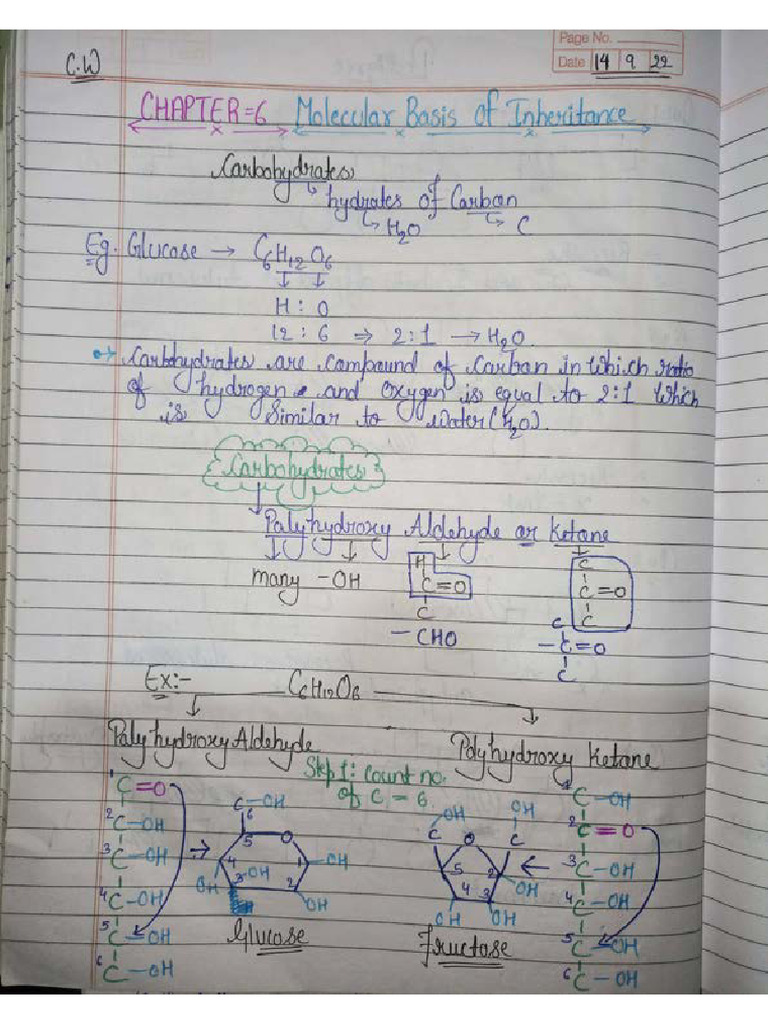 Page No.
C.W
Date 14 9 22
CHAPTER=6 Molecular Basis of Inheritance
Carbohydrates
hydrates of Carban
H2O C
Eg. Glucose → C6H12O6
H : O
12 : 6 ⇒ 2:1 → H2O.
Carbohydrates are Compound of Carban in which ratio
of hydrogen and Oxygen is equal to 2:1 Which
is Similar to Water (H2O).
Carbohydrates
Palyhydroxy Aldehyde or Ketane
many -OH H C=O C C=O C
C
-CHO C
-C=O
C
Ex:- C6H12O6
Palyhydroxy Aldehyde Polyhydroxy Ketane
Step 1: Count no.
of C - 6.
1C=O C-OH OH OH 1C-OH
2C-OH 6 C C 2C=O
3C-OH 5 O O 3C-OH
4 1 OH 5 2
4C-OH OH 3 OH 2 4 3 OH 4C-OH
5C-OH OH OH OH 5C-OH
6C-OH Glucose Fructase 6C-OH